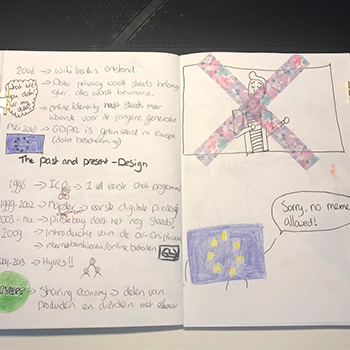 2006 → Wikileaks ontstond.
→ Data privacy wordt steeds belang
rijker, alles wordt bewaard.
What are you doin' w/ my data?
→ online identity heeft steeds meer
waarde voor de jongere generatie
Mei 2018 → GDPR is gelanceerd in Europa
(data bescherming)
The past and present - Design
1996 → ICQ → 1 vd eerste chat programma's
1999-2002 → Napster → eerste digitale piraterij
2003 - nu → piratebay doet het nog steeds!
2009 → Introductie van de OV-Chipkaart
→ internetbankieren/online betalen
2004-2013 → Hyves!!
→ Sharing economy → delen van
producten en diensten met elkaar
Sorry, no meme
allowed!